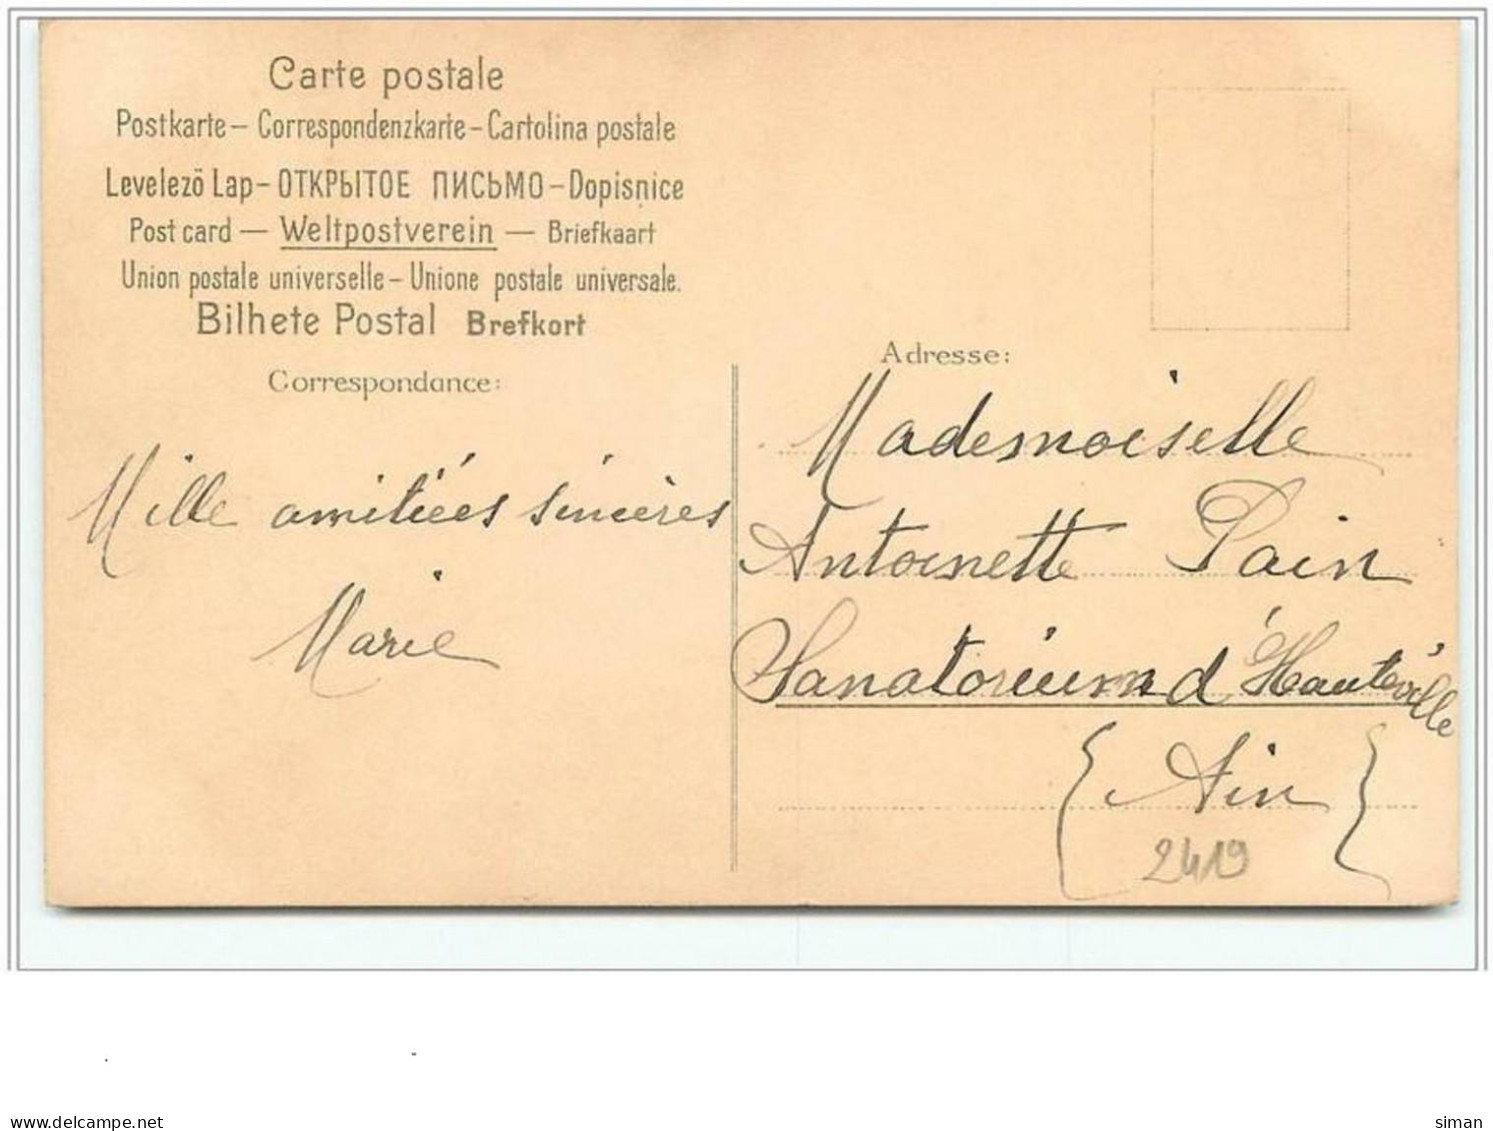 Carte postale
Postkarte – Correspondenzkarte – Cartolina postale
Levelező Lap – ОТКРЫТОЕ ПИСЬМО – Dopisnice
Post card — Weltpostverein — Briefkaart
Union postale universelle – Unione postale universale.
Bilhete Postal Brefkort
Correspondance:
Mille amitiées sincères
Marie
Adresse:
Mademoiselle
Antoinette Pain
Sanatorium d'Hauteville
{ Ain }
2419
www.delcampe.net
siman